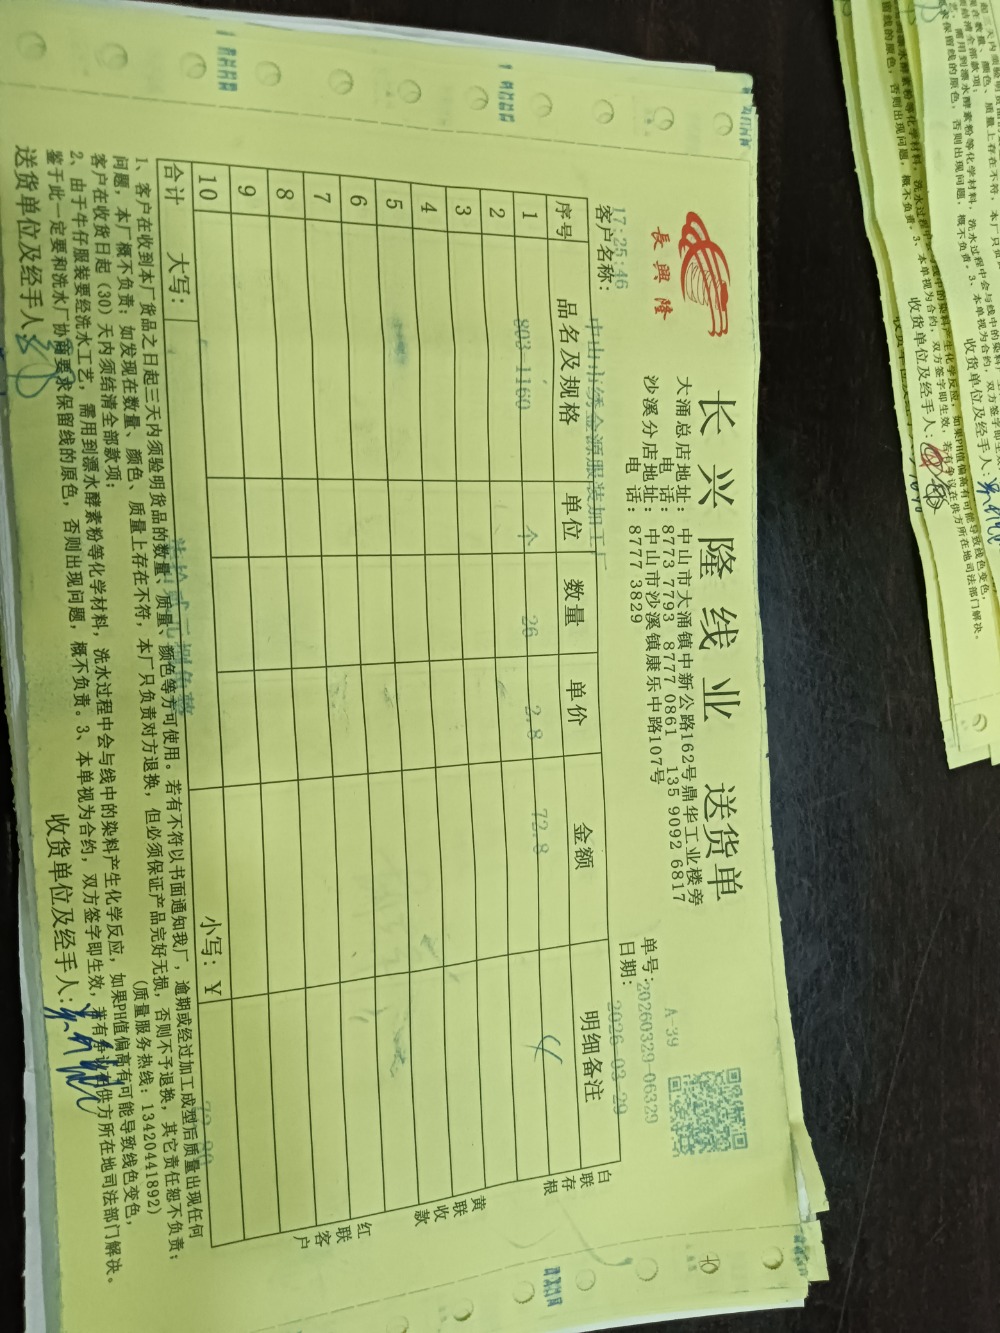 長興隆
长兴隆线业 送货单
大涌总店地址：中山市大涌镇中新公路162号鼎华工业楼旁
电 话：8773 7793 8777 0861 135 9092 6817
沙溪分店地址：中山市沙溪镇康乐中路107号
电 话：8777 3829
A-39
单号：20260329-06329
日期：2026-03-29
17:25:46
客户名称：中山市绣金源服装加工厂
序号 品名及规格 单位 数量 单价 金额 明细备注
1 803-1160 个 26 2.8 72.8
2
3
4
5
6
7
8
9
10
合计 大写： 小写：￥
白联存根
黄联收款
红联客户
1、客户在收到本厂货品之日起三天内须验明货品的数量、质量、颜色等方可使用。若有不符以书面通知我厂，逾期或经过加工成型后质量出现任何
问题，本厂概不负责；如发现在数量、颜色、质量上存在不符，本厂只负责对方退换，但必须保证产品完好无损，否则不予退换，其它责任恕不负责；
客户在收货日起（30）天内须结清全部款项；（质量服务热线：13420441892）
2、由于牛仔服装要经洗水工艺，需用到漂水酵素粉等化学材料，洗水过程中会与线中的染料产生化学反应，如果PH值偏高有可能导致线色变色，
鉴于此一定要和洗水厂协商要求保留线的原色，否则出现问题，概不负责。3、本单视为合约，双方签字即生效，若有争议在供方所在地司法部门解决。
送货单位及经手人：
收货单位及经手人：
收货单位及经手人：
收货单位及经手人：